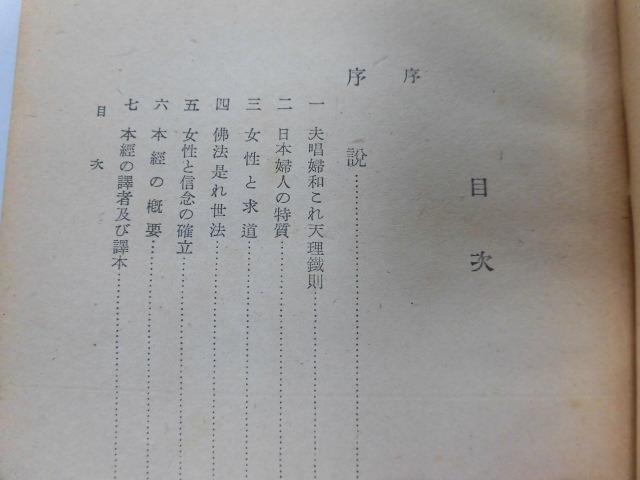 目次
序
序說
一 夫唱婦和これ天理鐵則
二 日本婦人の特質
三 女性と求道
四 佛法是れ世法
五 女性と信念の確立
六 本經の槪要
七 本經の譯者及び譯本
目次